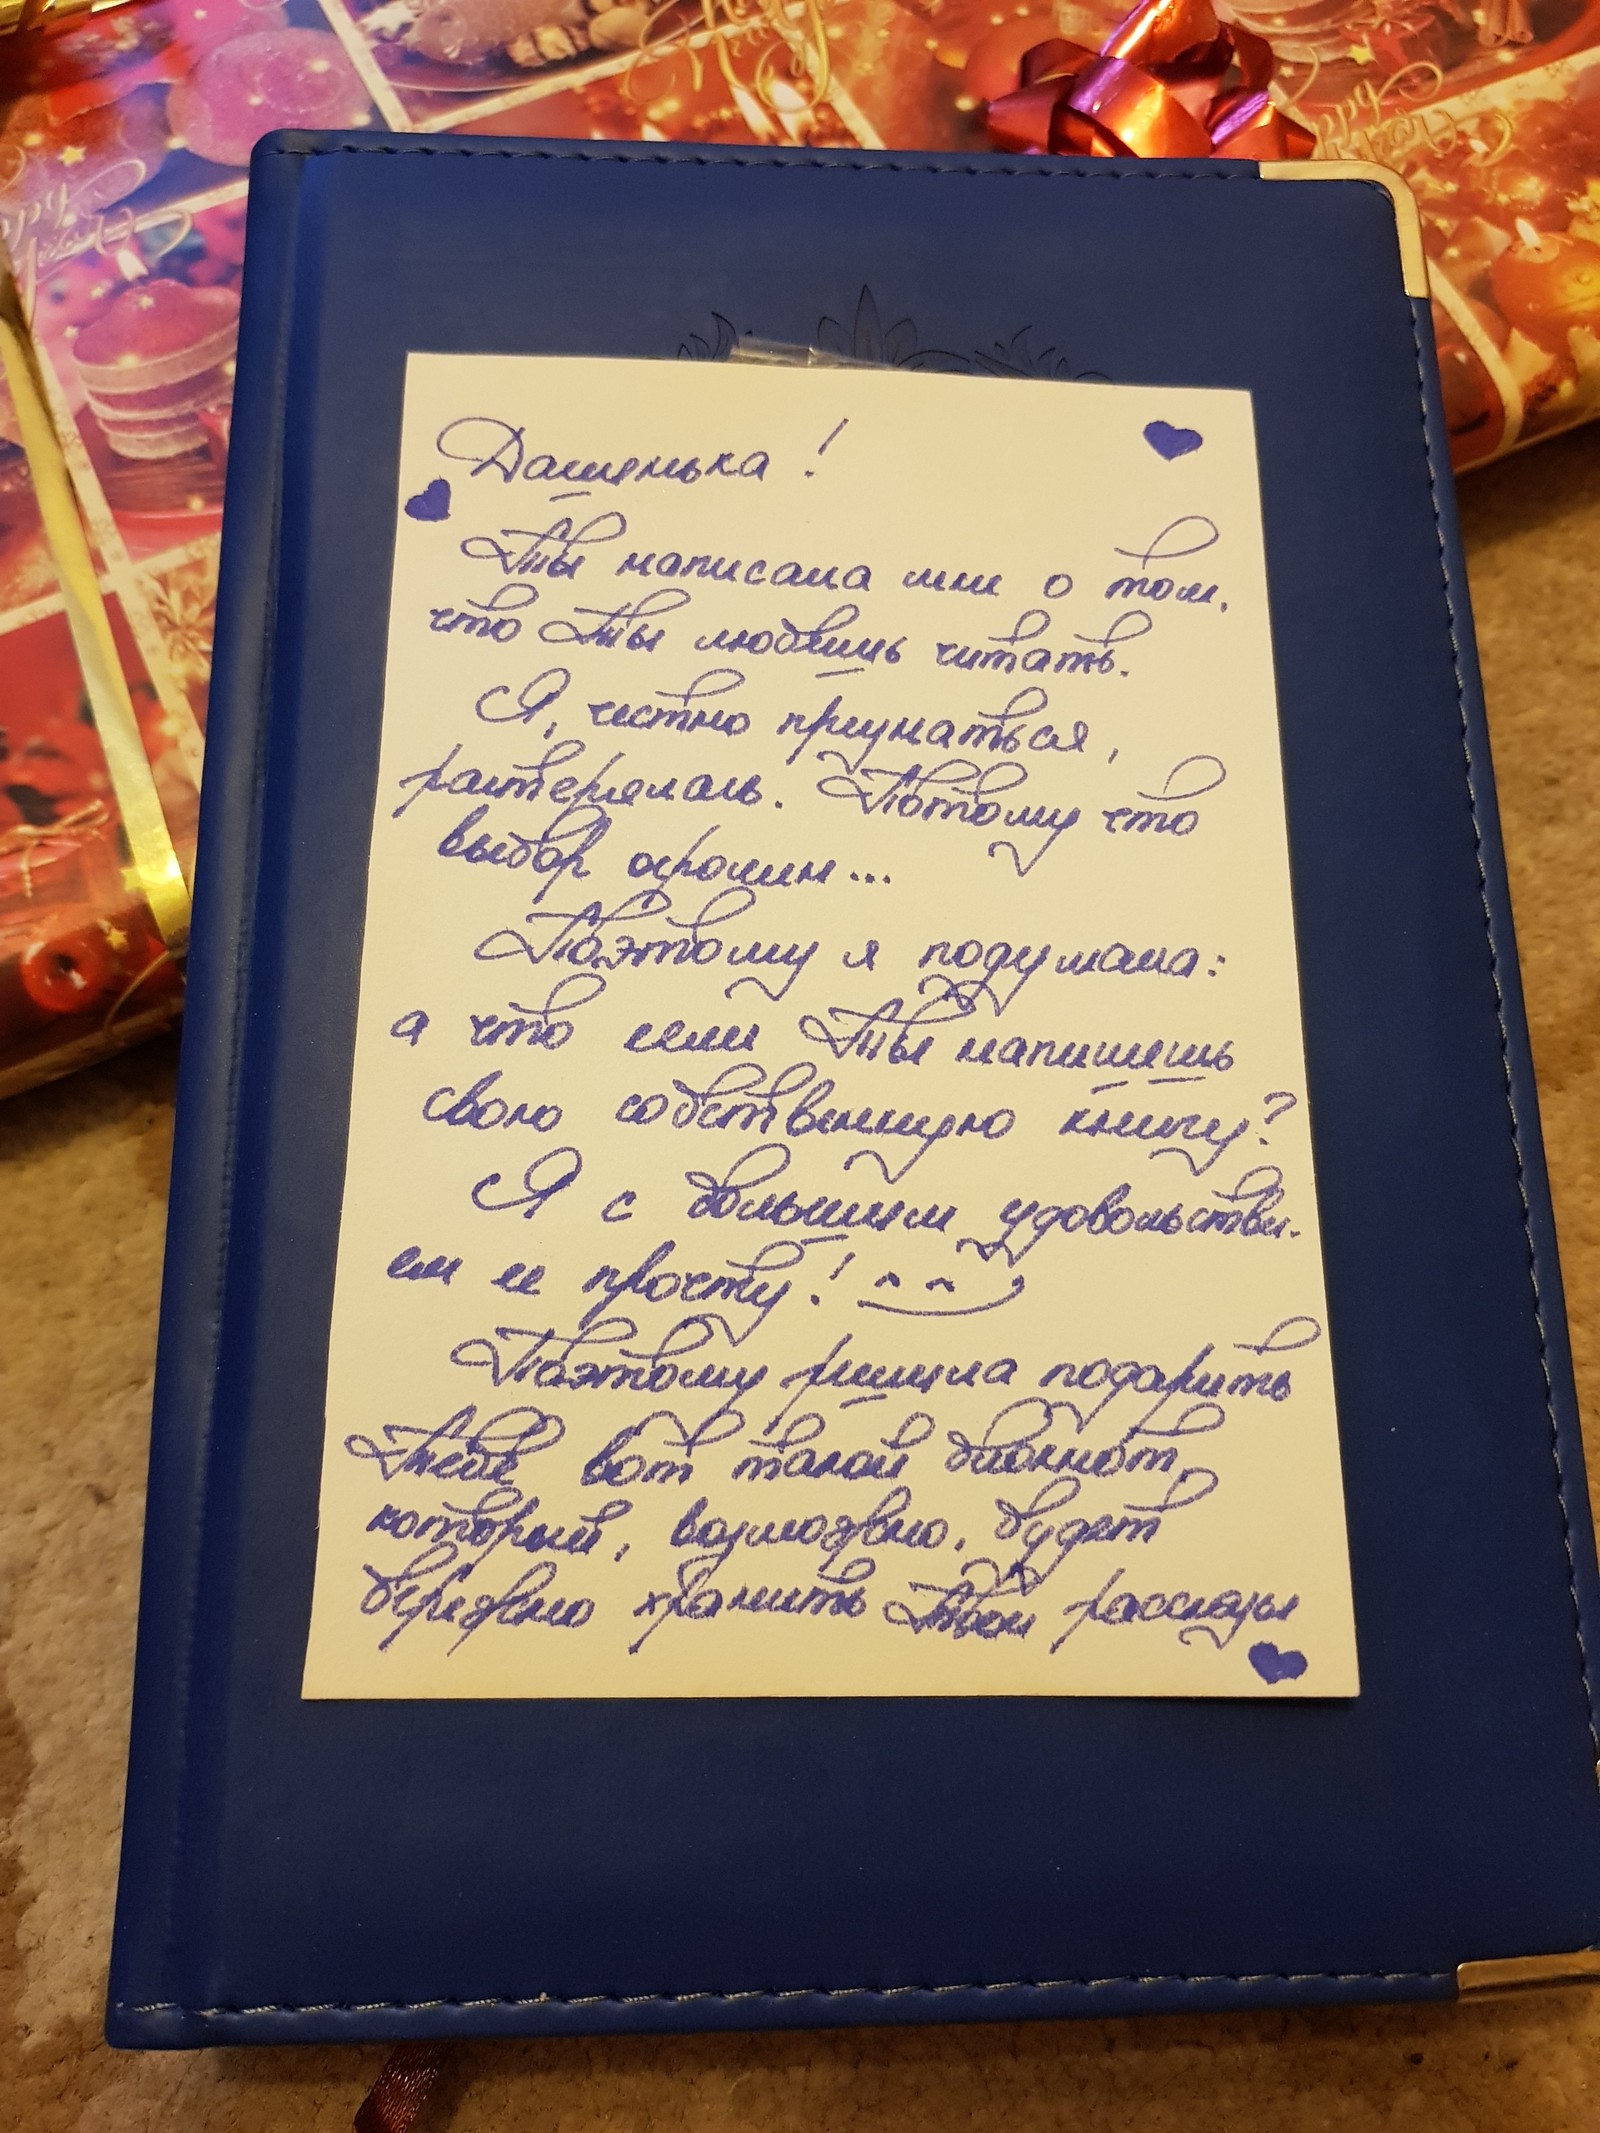 Дашенька!
Ты написала мне о том,
что Ты любишь читать.
Я, честно признаться,
растерялась. Потому что
выбор огромен...
Поэтому я подумала:
а что если Ты напишешь
свою собственную книгу?
Я с большим удовольстви-
ем ее прочту!
Поэтому решила подарить
Тебе вот такой блокнот,
который, возможно, будет
бережно хранить Твои рассказы
Happy